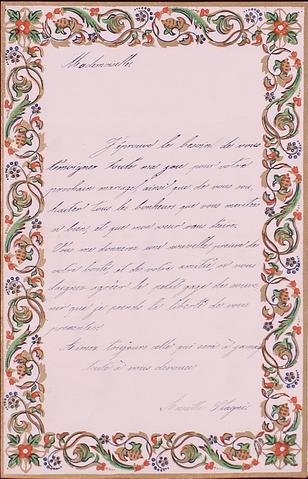 Mademoiselle,
J'éprouve le besoin de vous
témoigner toute ma joie pour votre
prochain mariage, ainsi que de vous sou
haiter tous les bonheurs que vous méritez
si bien, et que mon cœur vous désire.
Vous me donnerez une nouvelle preuve de
votre bonté, et de votre amitié, en vous
agréer le petit gage de
que je prends la liberté de vous
présenter.
Aimez toujours celle qui sera à jamais
toute à vous dévouée.